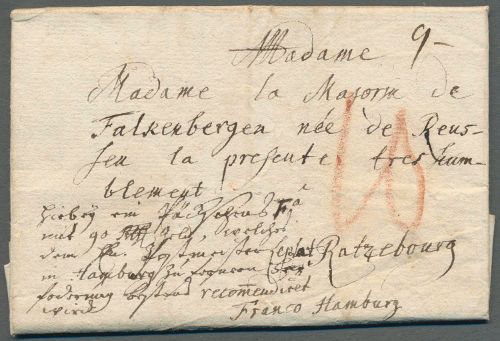 Madame 9-
Madame la Majorin de
Falkenbergen née de Reus-
sen la presente tres hum-
blement
à
hiebey ein Päckchen F
mit 90 welches
dem Hn. Postmeister Ratzebourg
in Hamburg zu
recommendiret
wird
Franco Hamburg